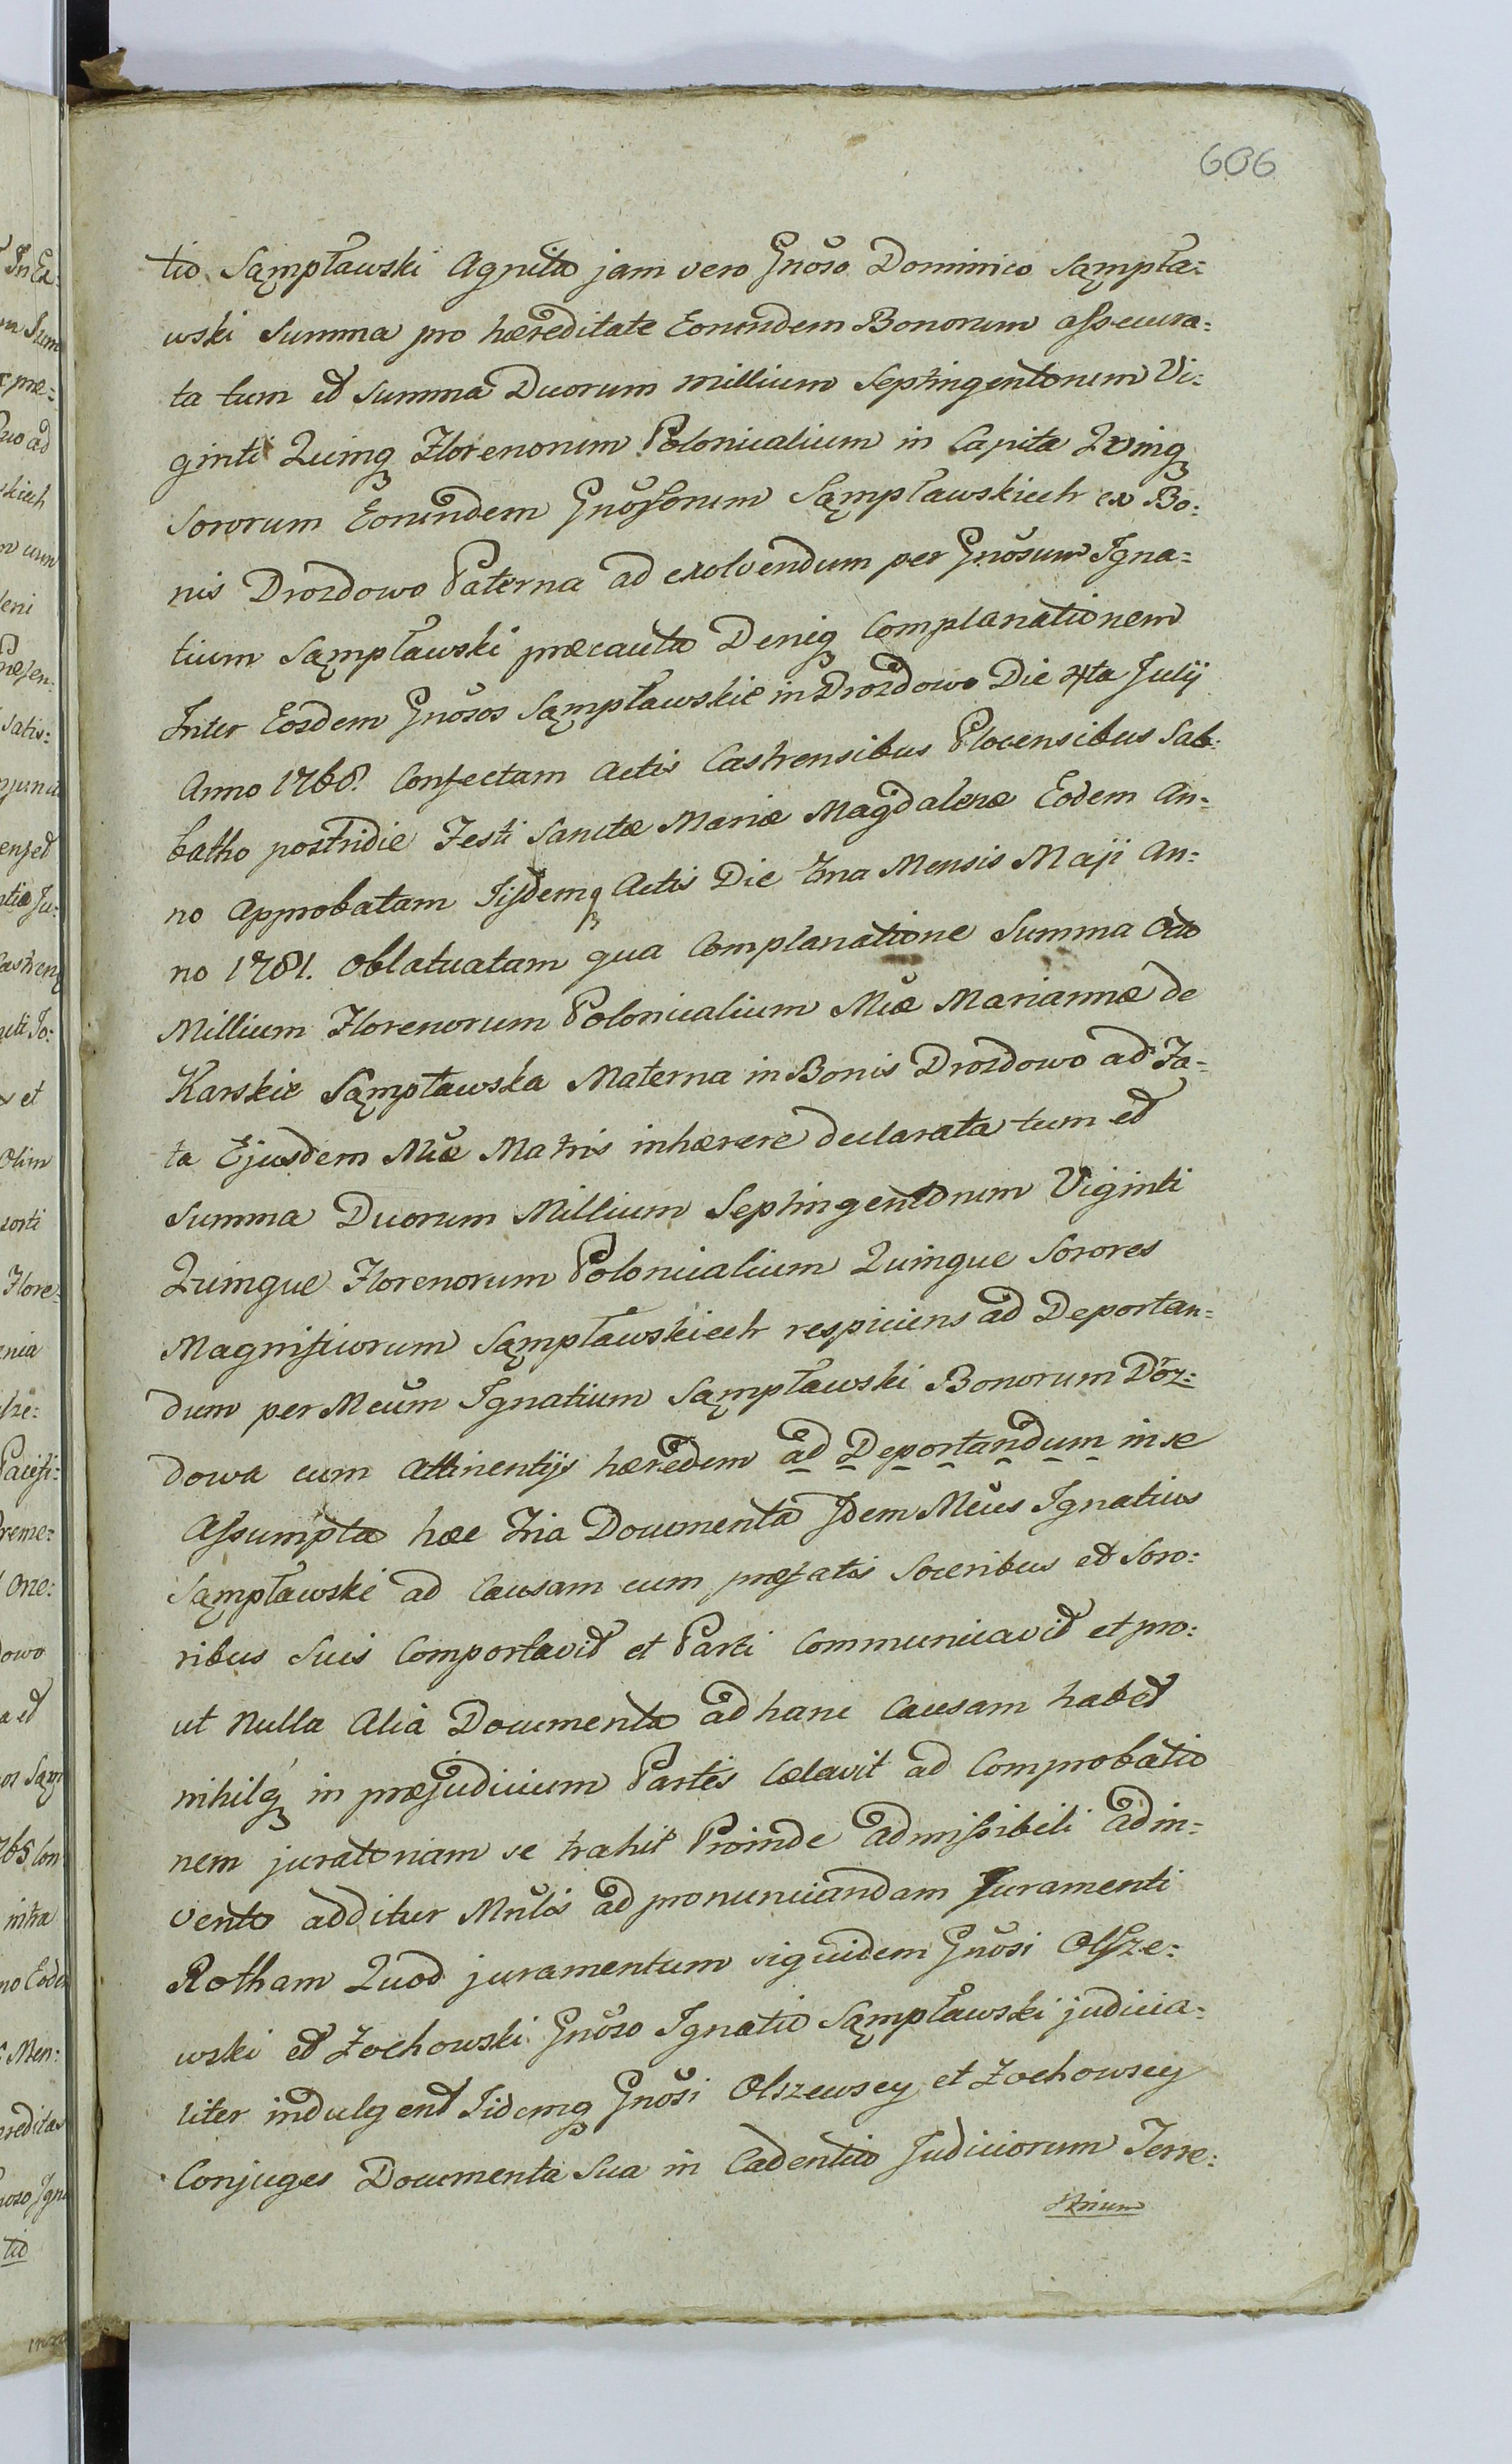 606
tio Sąmpławski Agnita jam vero Gnõso Dominico Sąmpła=
wski Summa pro hæreditate Eorundem Bonorum assecura=
ta tum et Summa Duorum millium Septingentorum Vi=
ginti Quinq Florenorum Polonicalium in Capita Quinq
Sororum Eorundem Gnõsorum Sąmpławskich ex Bo=
nis Drozdowo Paterna ad exolvendum per Gnõsum Igna=
tium Sąmpławski præcauta Deniq Complanationem
Inter Eosdem Gnõsos Sąmpławskie in Drozdowo Die 4ta Julij
Anno 1768. Confectam Actis Castrensibus Plocensibus Sab=
batho postridie Festi Sanctæ Mariæ Magdalenæ Eodem An=
no Approbatam Iisdemq Actis Die Ima Mensis Maji An=
no 1781. Oblatuatam qua Complanatione Summa Octo
Millium Florenorum Polonicalium Mcæ Mariannæ de
Karskie Sąmpławska Materna in Bonis Drozdowo ad Fa=
ta Ejusdem Mcæ Matris inhærere declarata tum et
Summa Duorum Millium Septingentorum Viginti
Quinque Florenorum Polonicalium Quinque Sorores
Magnificorum Sąmpławskich respiciens ad Deportan=
dum per Mcum Ignatium Sąmpławski Bonorum Droz=
dowa cum Attinentijs hæredem ad Deportandum in se
Assumpta hæc Tria Documenta Idem Mcus Ignatius
Sąmpławski ad Causam cum præfatis Soceribus et Soro=
ribus Suis Comportavit et Parti Communicavit et pro=
ut Nulla Alia Documenta ad hanc Causam habet
nihilq in præjudicium Partis Cælavit ad Comprobatio
nem juratoriam se trahit Proinde admissibili ad in=
vento additur Mnlis ad pronunciandam Juramenti
Rotham Quod juramentum siquidem Gnõsi Olsze=
wski et Zochowski Gnõso Ignatio Sąmpławski judicia=
liter indulgent Iidemq Gnõsi Olszewscy et Zochowscy
Conjuges Documenta Sua in Cadentia Judiciorum Terre=
strium